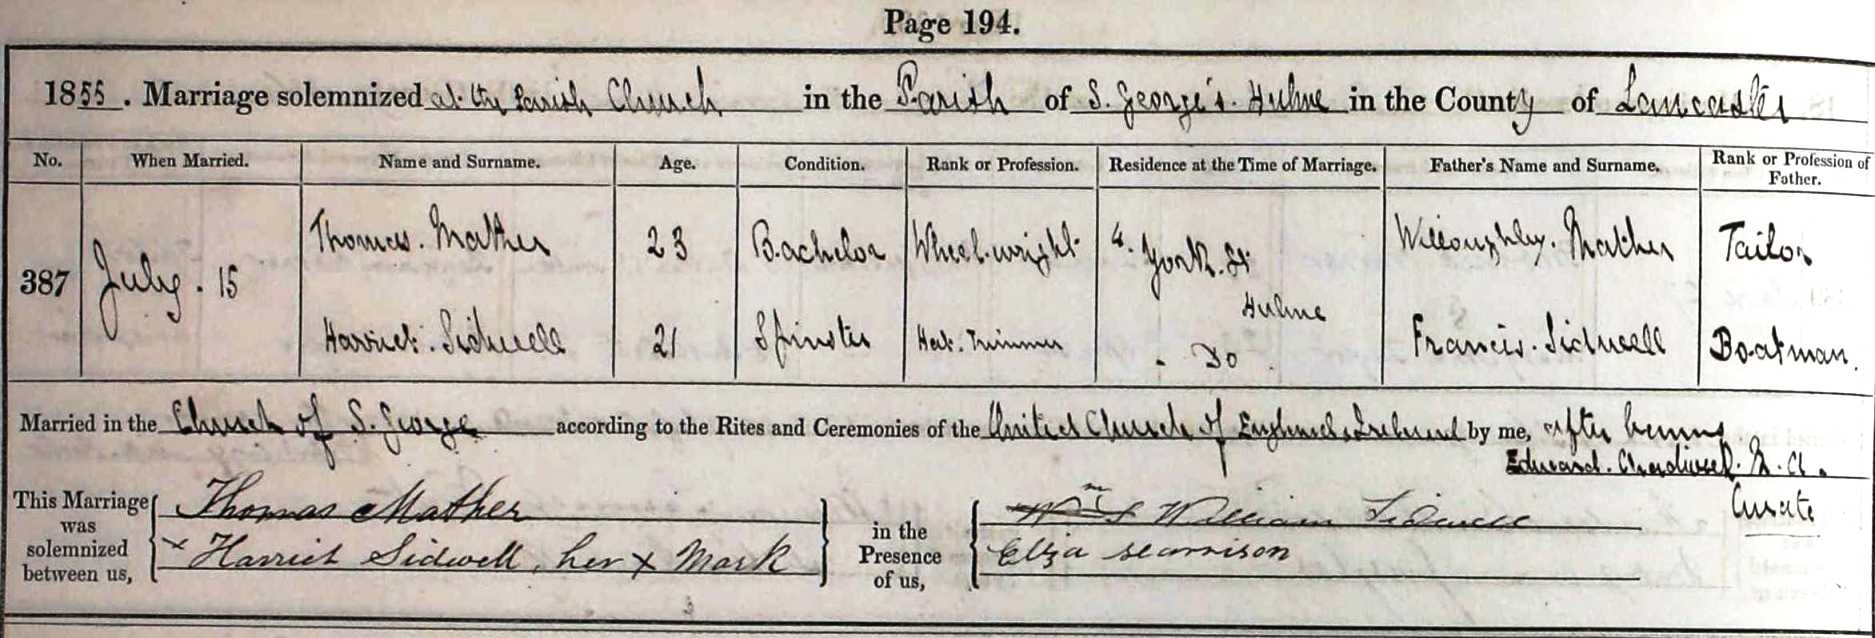 Page 194.
1855. Marriage solemnized at the Parish Church in the Parish of S. George's. Hulme in the County of Lancaster
No. When Married. Name and Surname. Age. Condition. Rank or Profession. Residence at the Time of Marriage. Father's Name and Surname. Rank or Profession of Father.
387 July. 15 Thomas. Mather 23 Bachelor Wheelwright York. St Hulme Willoughby. Mather Tailor
Harriet. Sidwell 21 Spinster Hat. Trimmer Do Francis. Sidwell Boatman.
Married in the Church of S. George according to the Rites and Ceremonies of the United Church of England & Ireland by me, after banns
Edward. M. A.
Curate
This Marriage was solemnized between us, Thomas Mather
x Harriet Sidwell, her x Mark
in the Presence of us, William Sidwell
Eliza Harrison